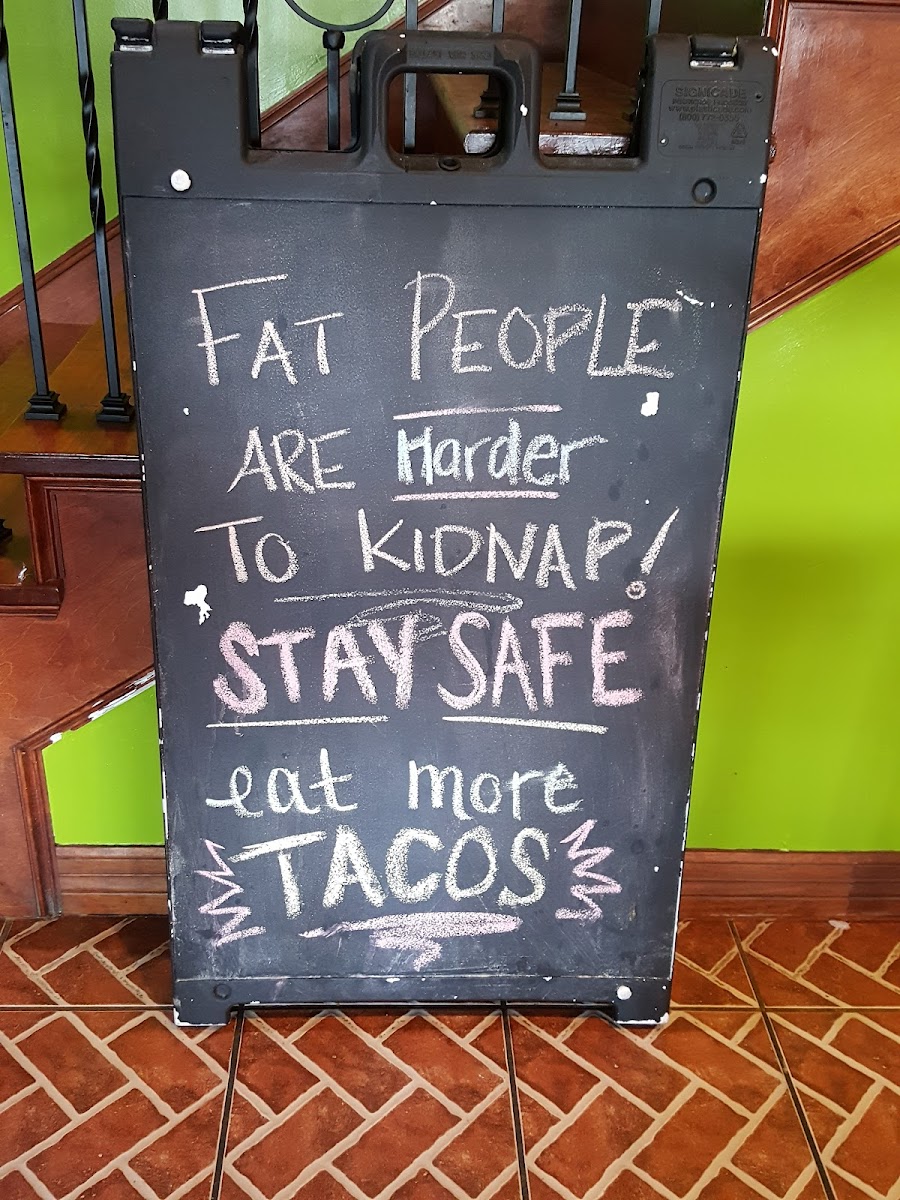 SIGNICADE
FAT PEOPLE
ARE Harder
TO KIDNAP!
STAY SAFE
eat more
TACOS